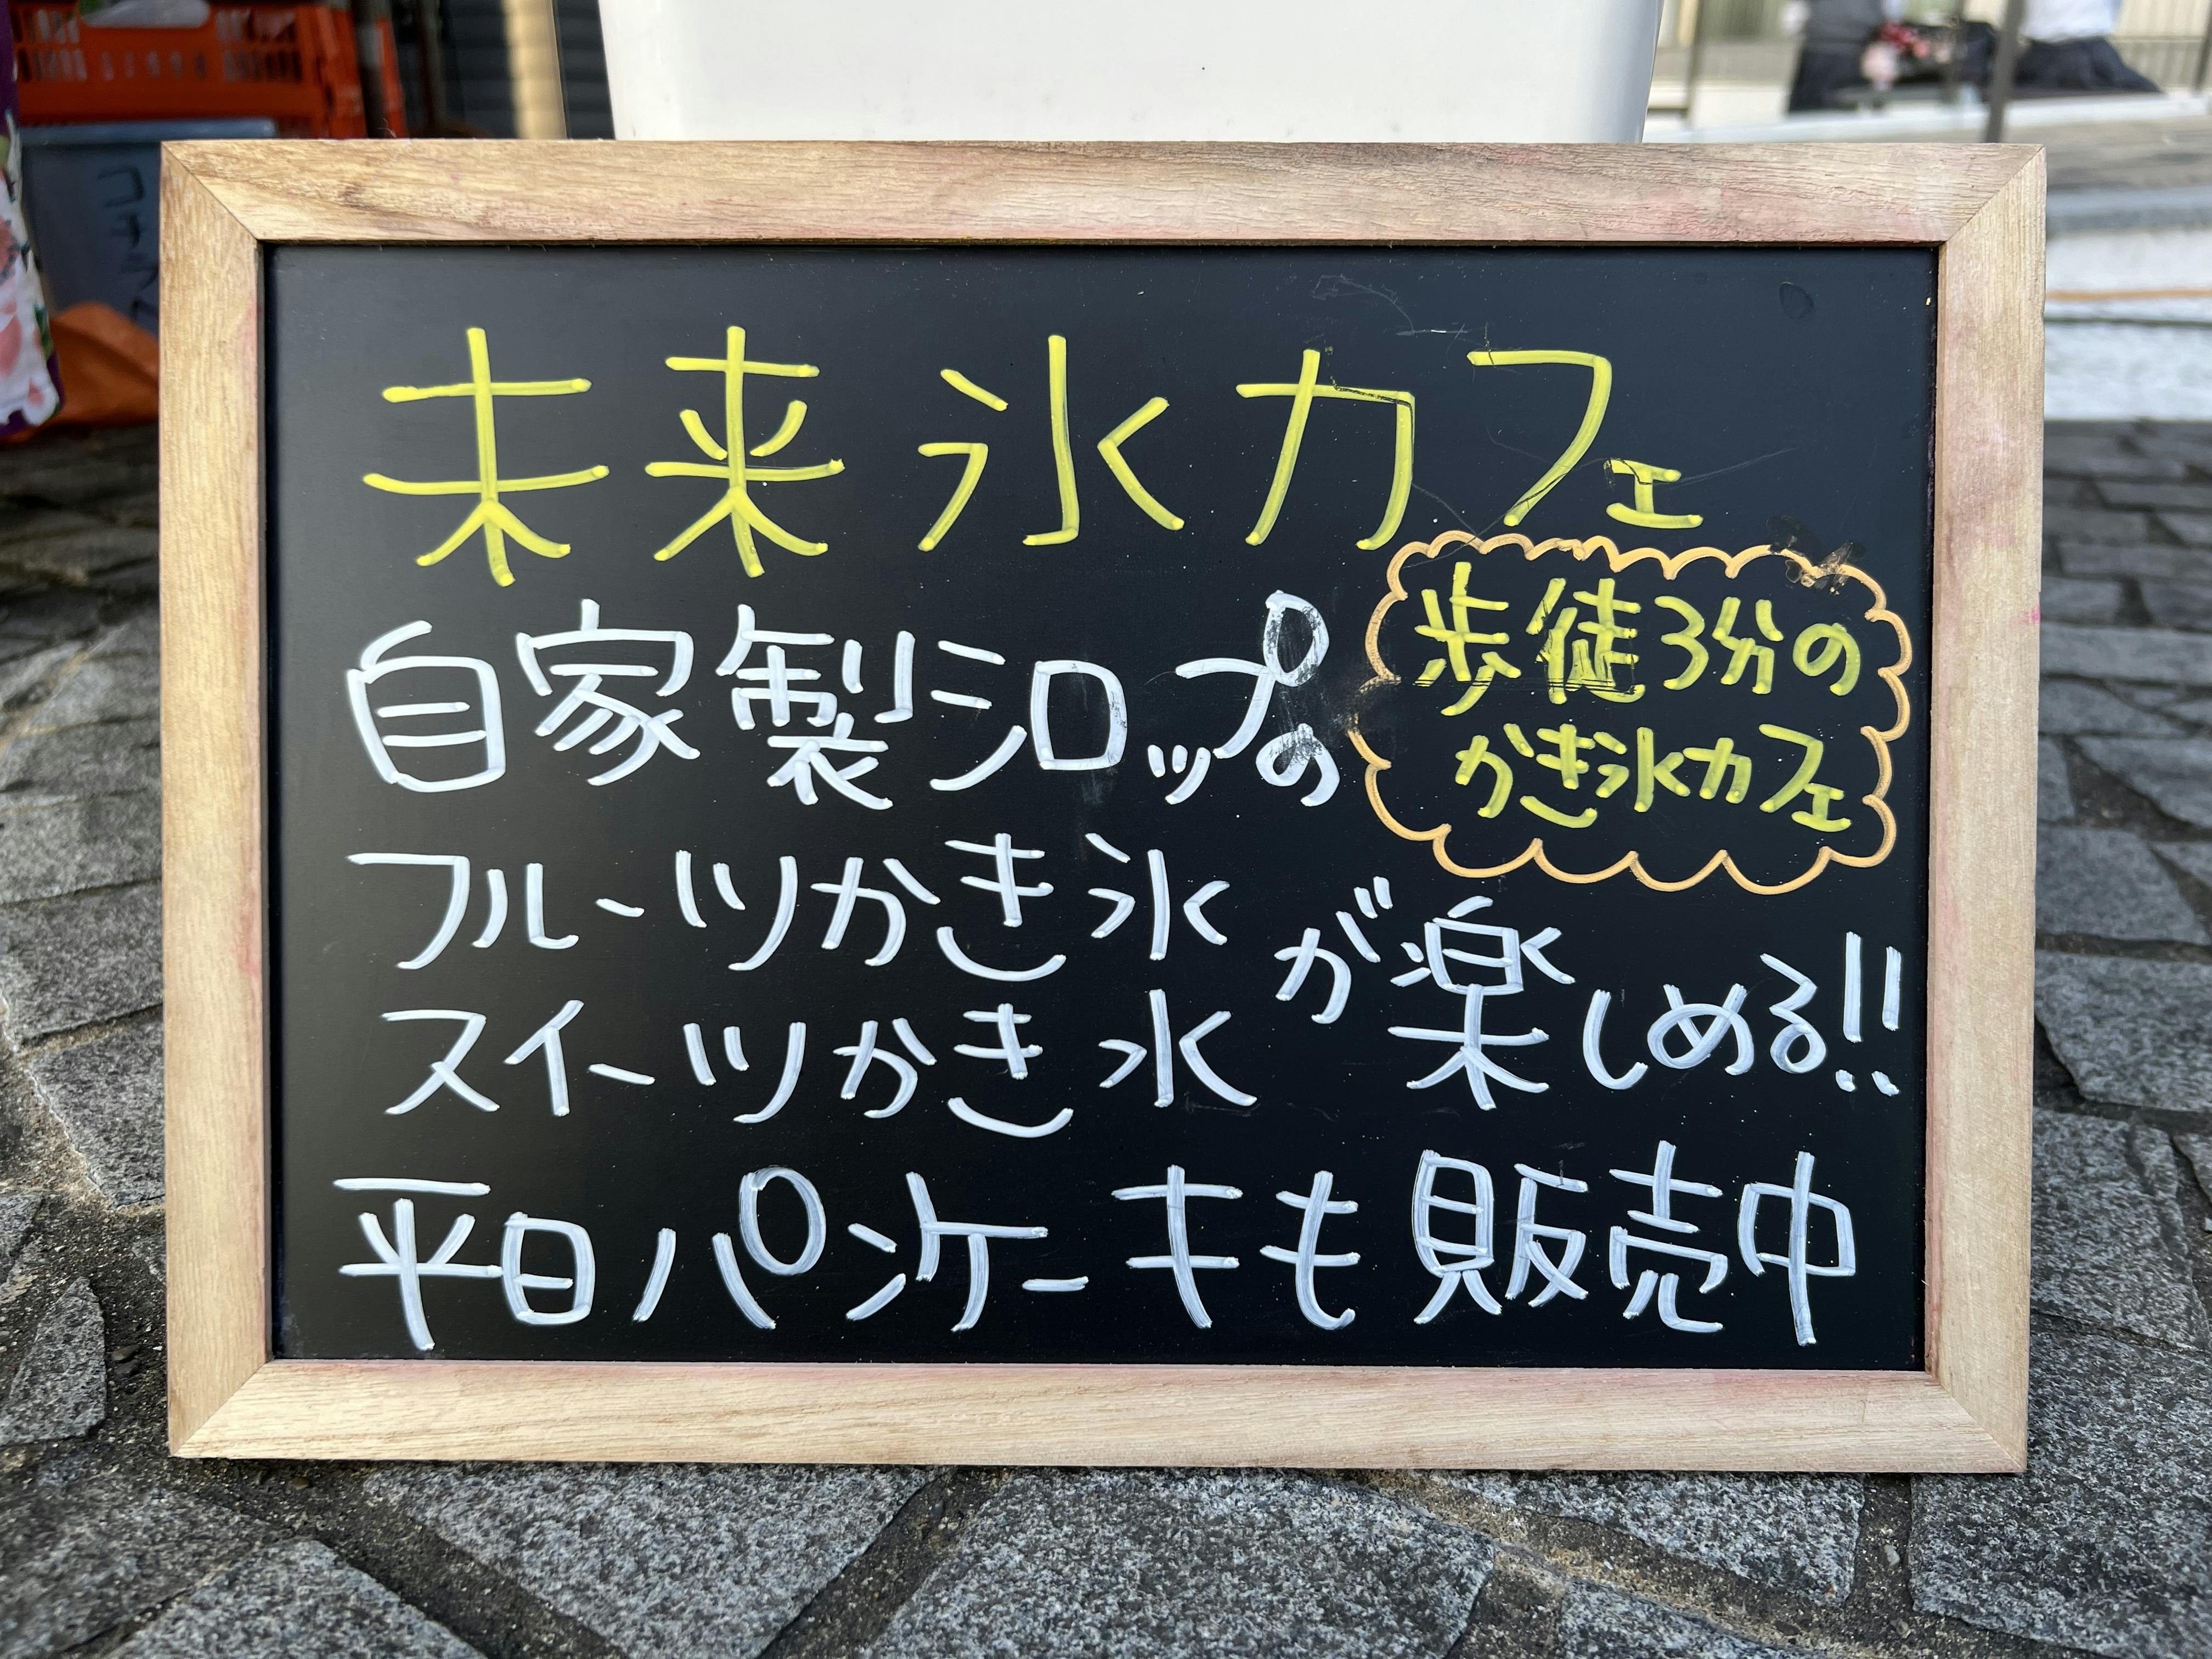 未来氷カフェ
歩徒3分の
かき氷カフェ
自家製シロップの
フルーツかき氷
スイーツかき水
が楽しめる!!
平日パンケーキも販売中